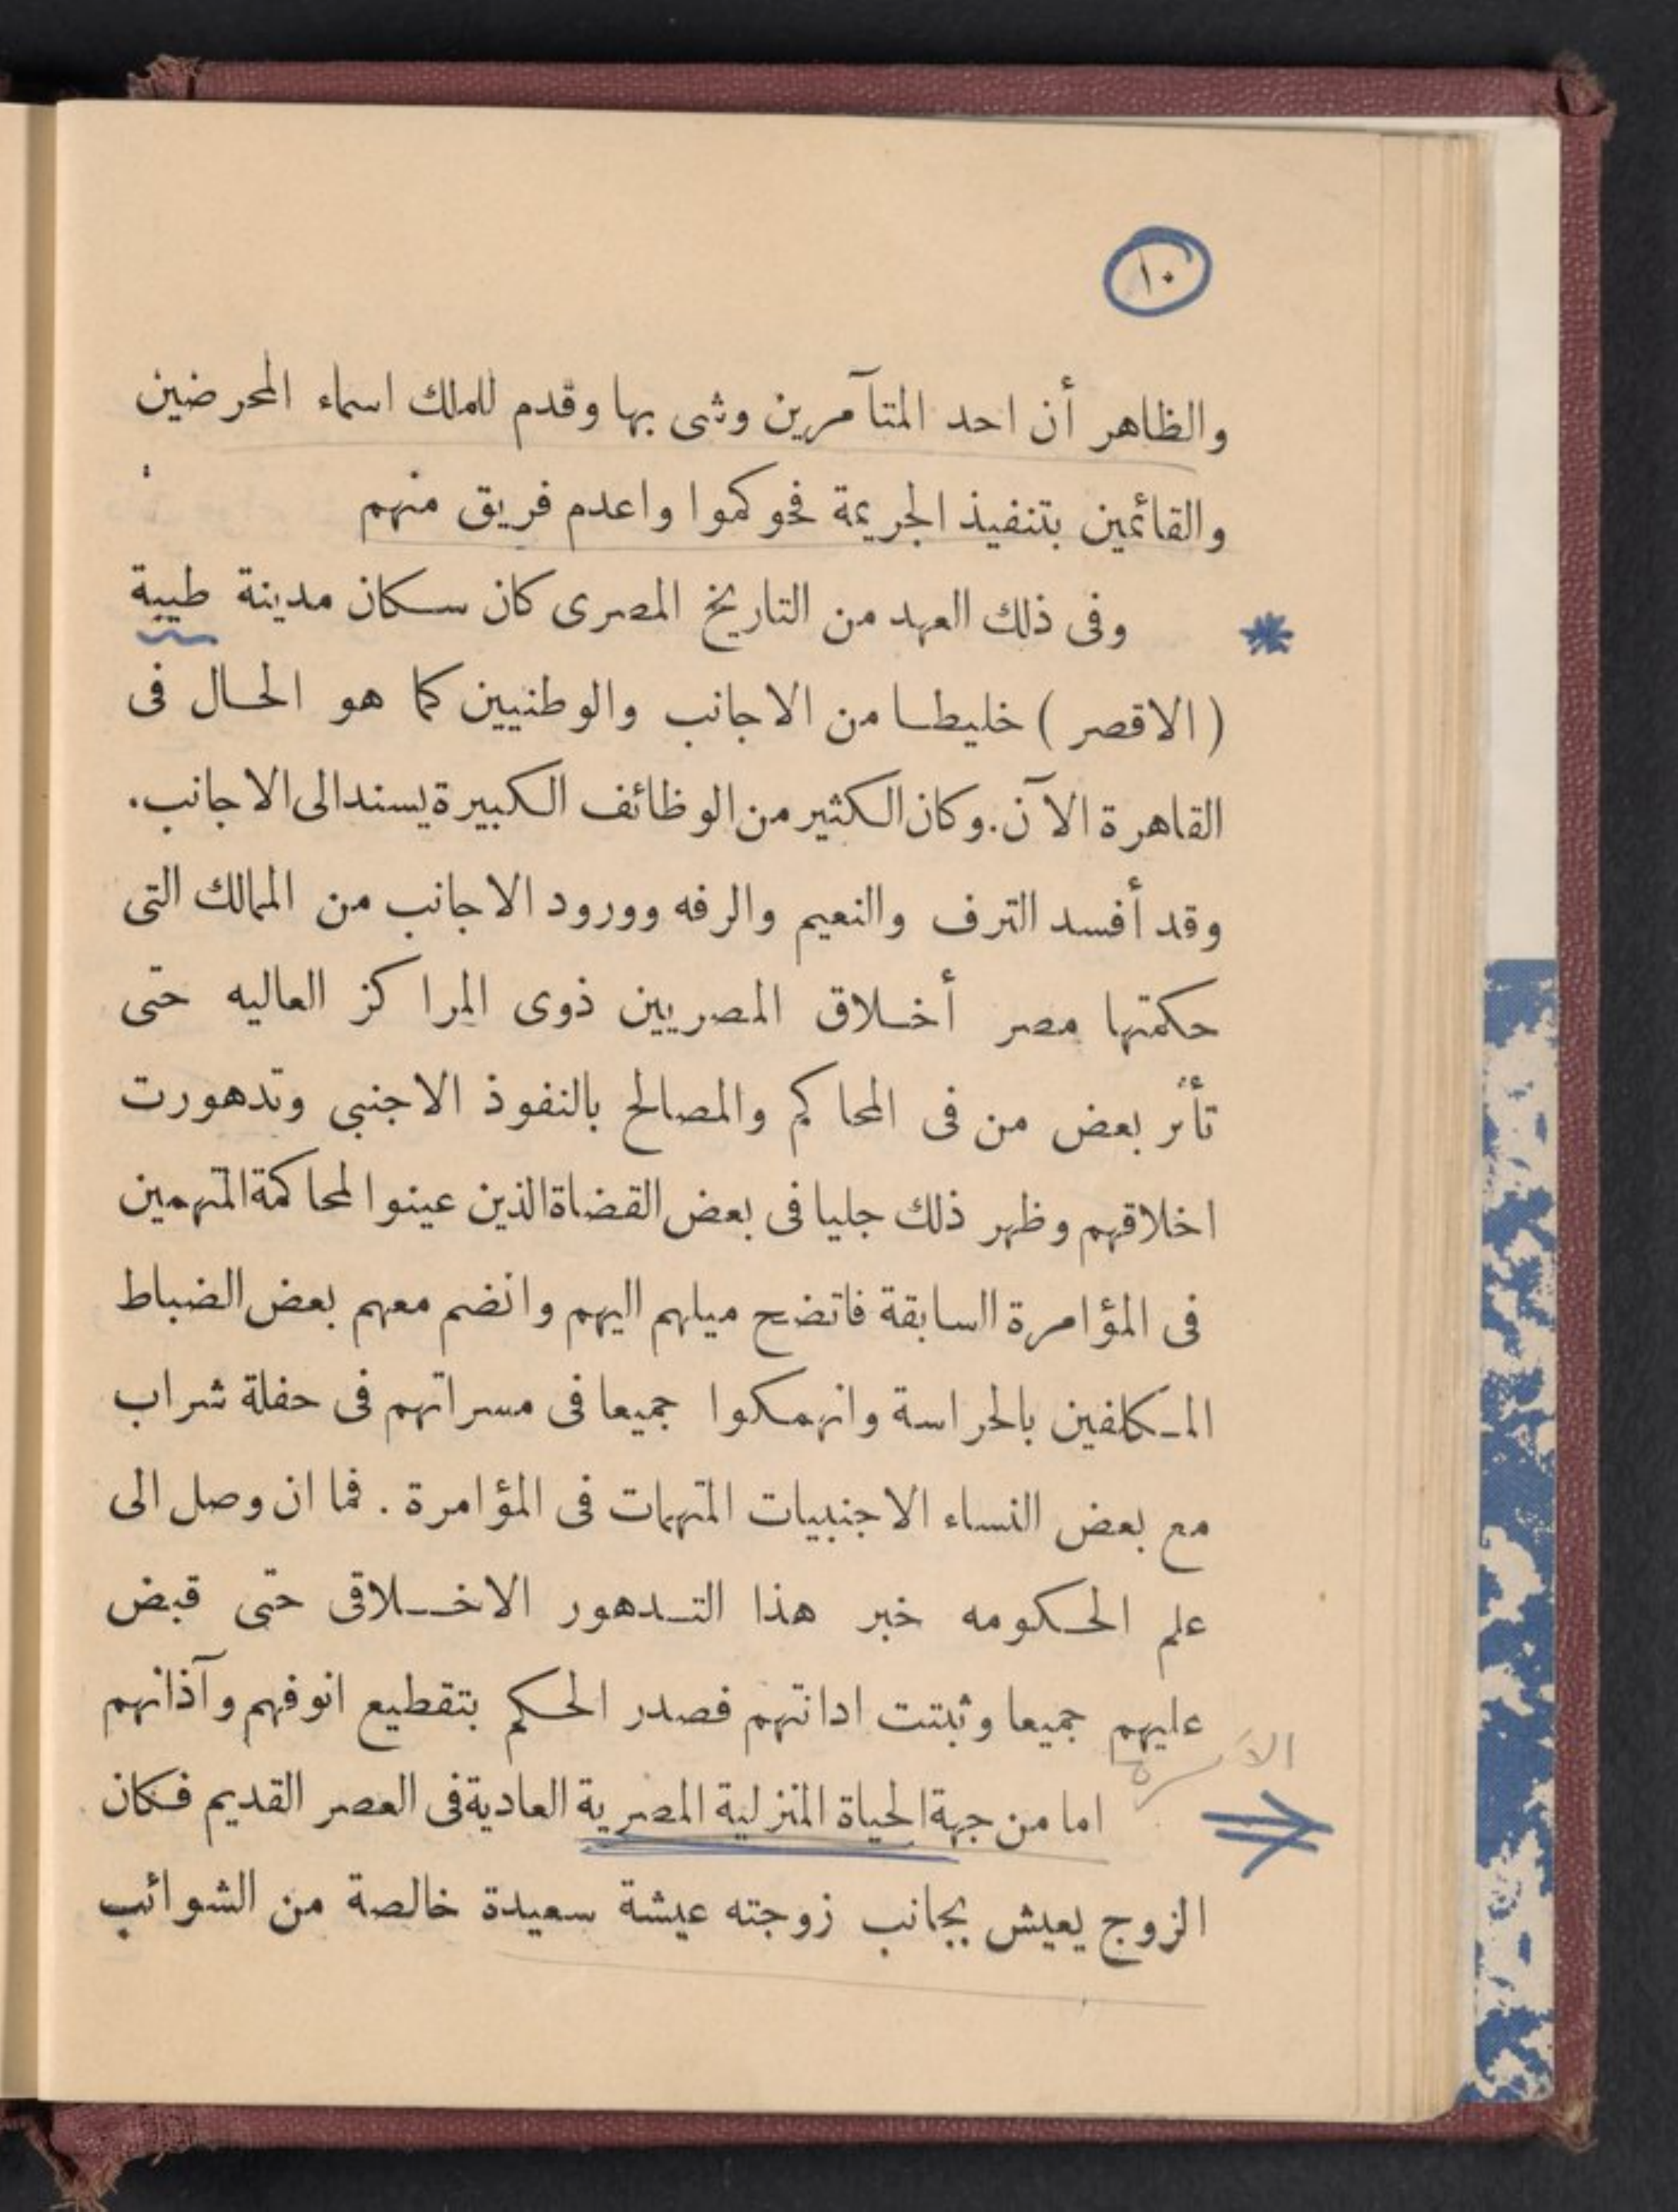 ١٠
والظاهر أن احد المتآمرين وشى بها وقدم للملك اسماء المحرضين
والقائمين بتنفيذ الجريمة فحوكموا واعدم فريق منهم
وفى ذلك العهد من التاريخ المصرى كان سكان مدينة طيبة
( الاقصر ) خليطا من الاجانب والوطنيين كما هو الحال فى
القاهرة الآن. وكان الكثير من الوظائف الكبيرة يسند الى الاجانب.
وقد أفسد الترف والنعيم والرفه وورود الاجانب من الممالك التى
حكمتها مصر أخلاق المصريين ذوى المراكز العاليه حتى
تأثر بعض من فى المحاكم والمصالح بالنفوذ الاجنبى وتدهورت
اخلاقهم وظهر ذلك جليا فى بعض القضاة الذين عينوا لمحاكمة المتهمين
فى المؤامرة السابقة فاتضح ميلهم اليهم وانضم معهم بعض الضباط
المكلفين بالحراسة وانهمكوا جميعا فى مسراتهم فى حفلة شراب
مع بعض النساء الاجنبيات المتهمات فى المؤامرة . فما ان وصل الى
علم الحكومه خبر هذا التدهور الاخلاقى حتى قبض
عليهم جميعا وثبتت ادانتهم فصدر الحكم بتقطيع انوفهم وآذانهم
الأسرة
اما من جهة الحياة المنزلية المصرية العادية فى العصر القديم فكان
الزوج يعيش بجانب زوجته عيشة سعيدة خالصة من الشوائب